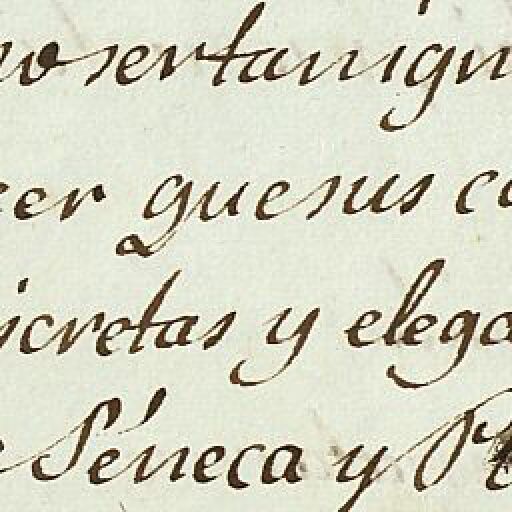 no ser tan ign
eer que sus co
iscretas y elega
e Séneca y P